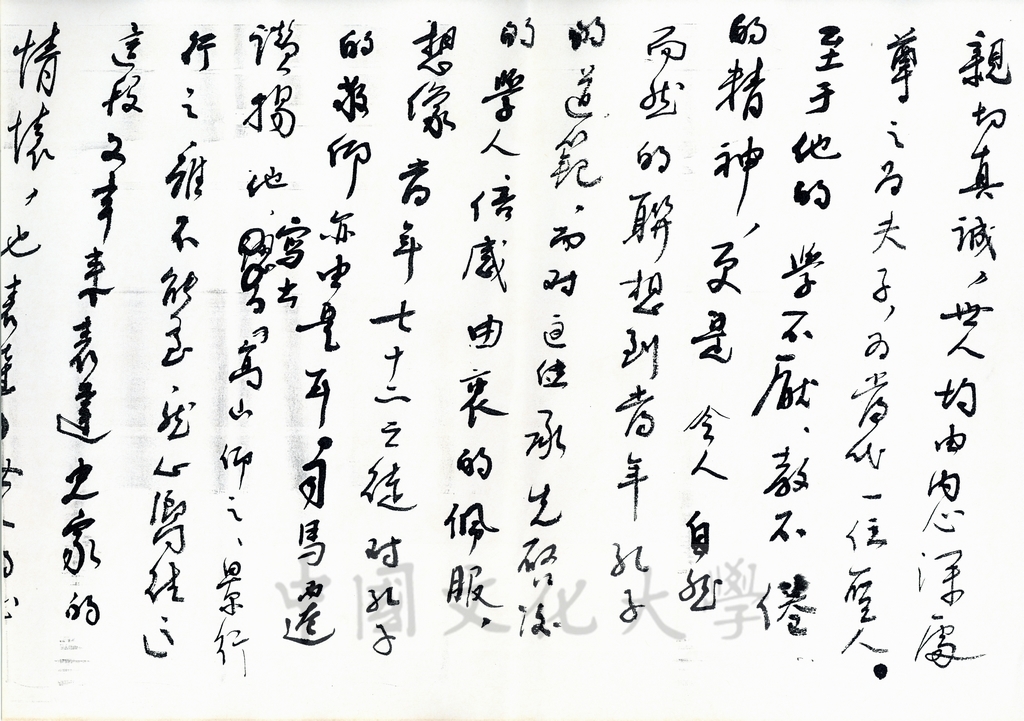 親切真誠，世人均由內心深處
尊之為夫子，為當代一位聖人。
至于他的 學不厭、教不倦
的精神，更是 令人 自然
而然的聯想到當年 孔子
的道範，而对這位承先啓後
的學人倍感由衷的佩服，
想像當年七十二之徒对孔子
的敬仰亦由是耳，司馬遷
讚揚他，寫出「高山仰之、景行
行之，雖不能至，然心嚮往」
這段文章來表達史家的
情懷，也表達
中國文化大學